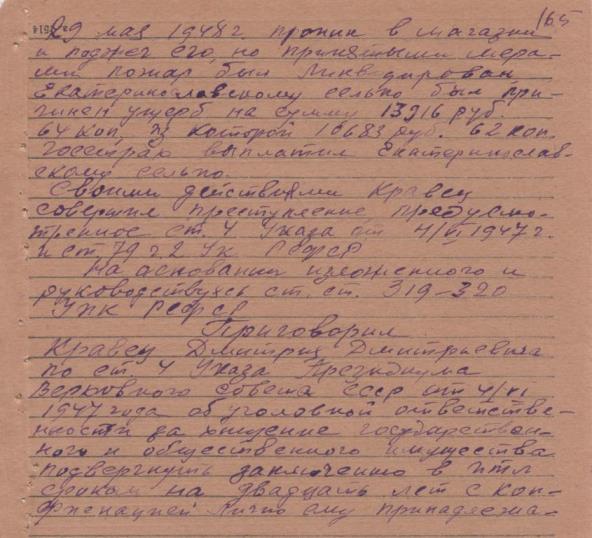 165
29 мая 1948 г. проник в магазин
и поджег его, но принятыми мера-
ми пожар был ликвидирован,
Екатеринославскому сельпо был при-
чинен ущерб на сумму 13916 руб.
64 коп, из которой 10683 руб. 62 коп.
Госстрах выплатил Екатеринослав-
скому сельпо.
Своими действиями Кравец
совершил преступление, предусмо-
тренное ст. 4 Указа от 4/VI 1947 г.
и ст 79 ч 2 УК РСФСР
На основании изложенного и
руководствуясь ст. ст. 319-320
УПК РСФСР
Приговорил
Кравец Дмитрия Дмитриевича
по ст. 4 Указа Президиума
Верховного Совета СССР от 4/VI
1947 года об уголовной ответстве-
нности за хищение государствен-
ного и общественного имущества
подвергнуть заключению в ИТЛ
сроком на двадцать лет с кон-
фискацией лично ему принадлежа-